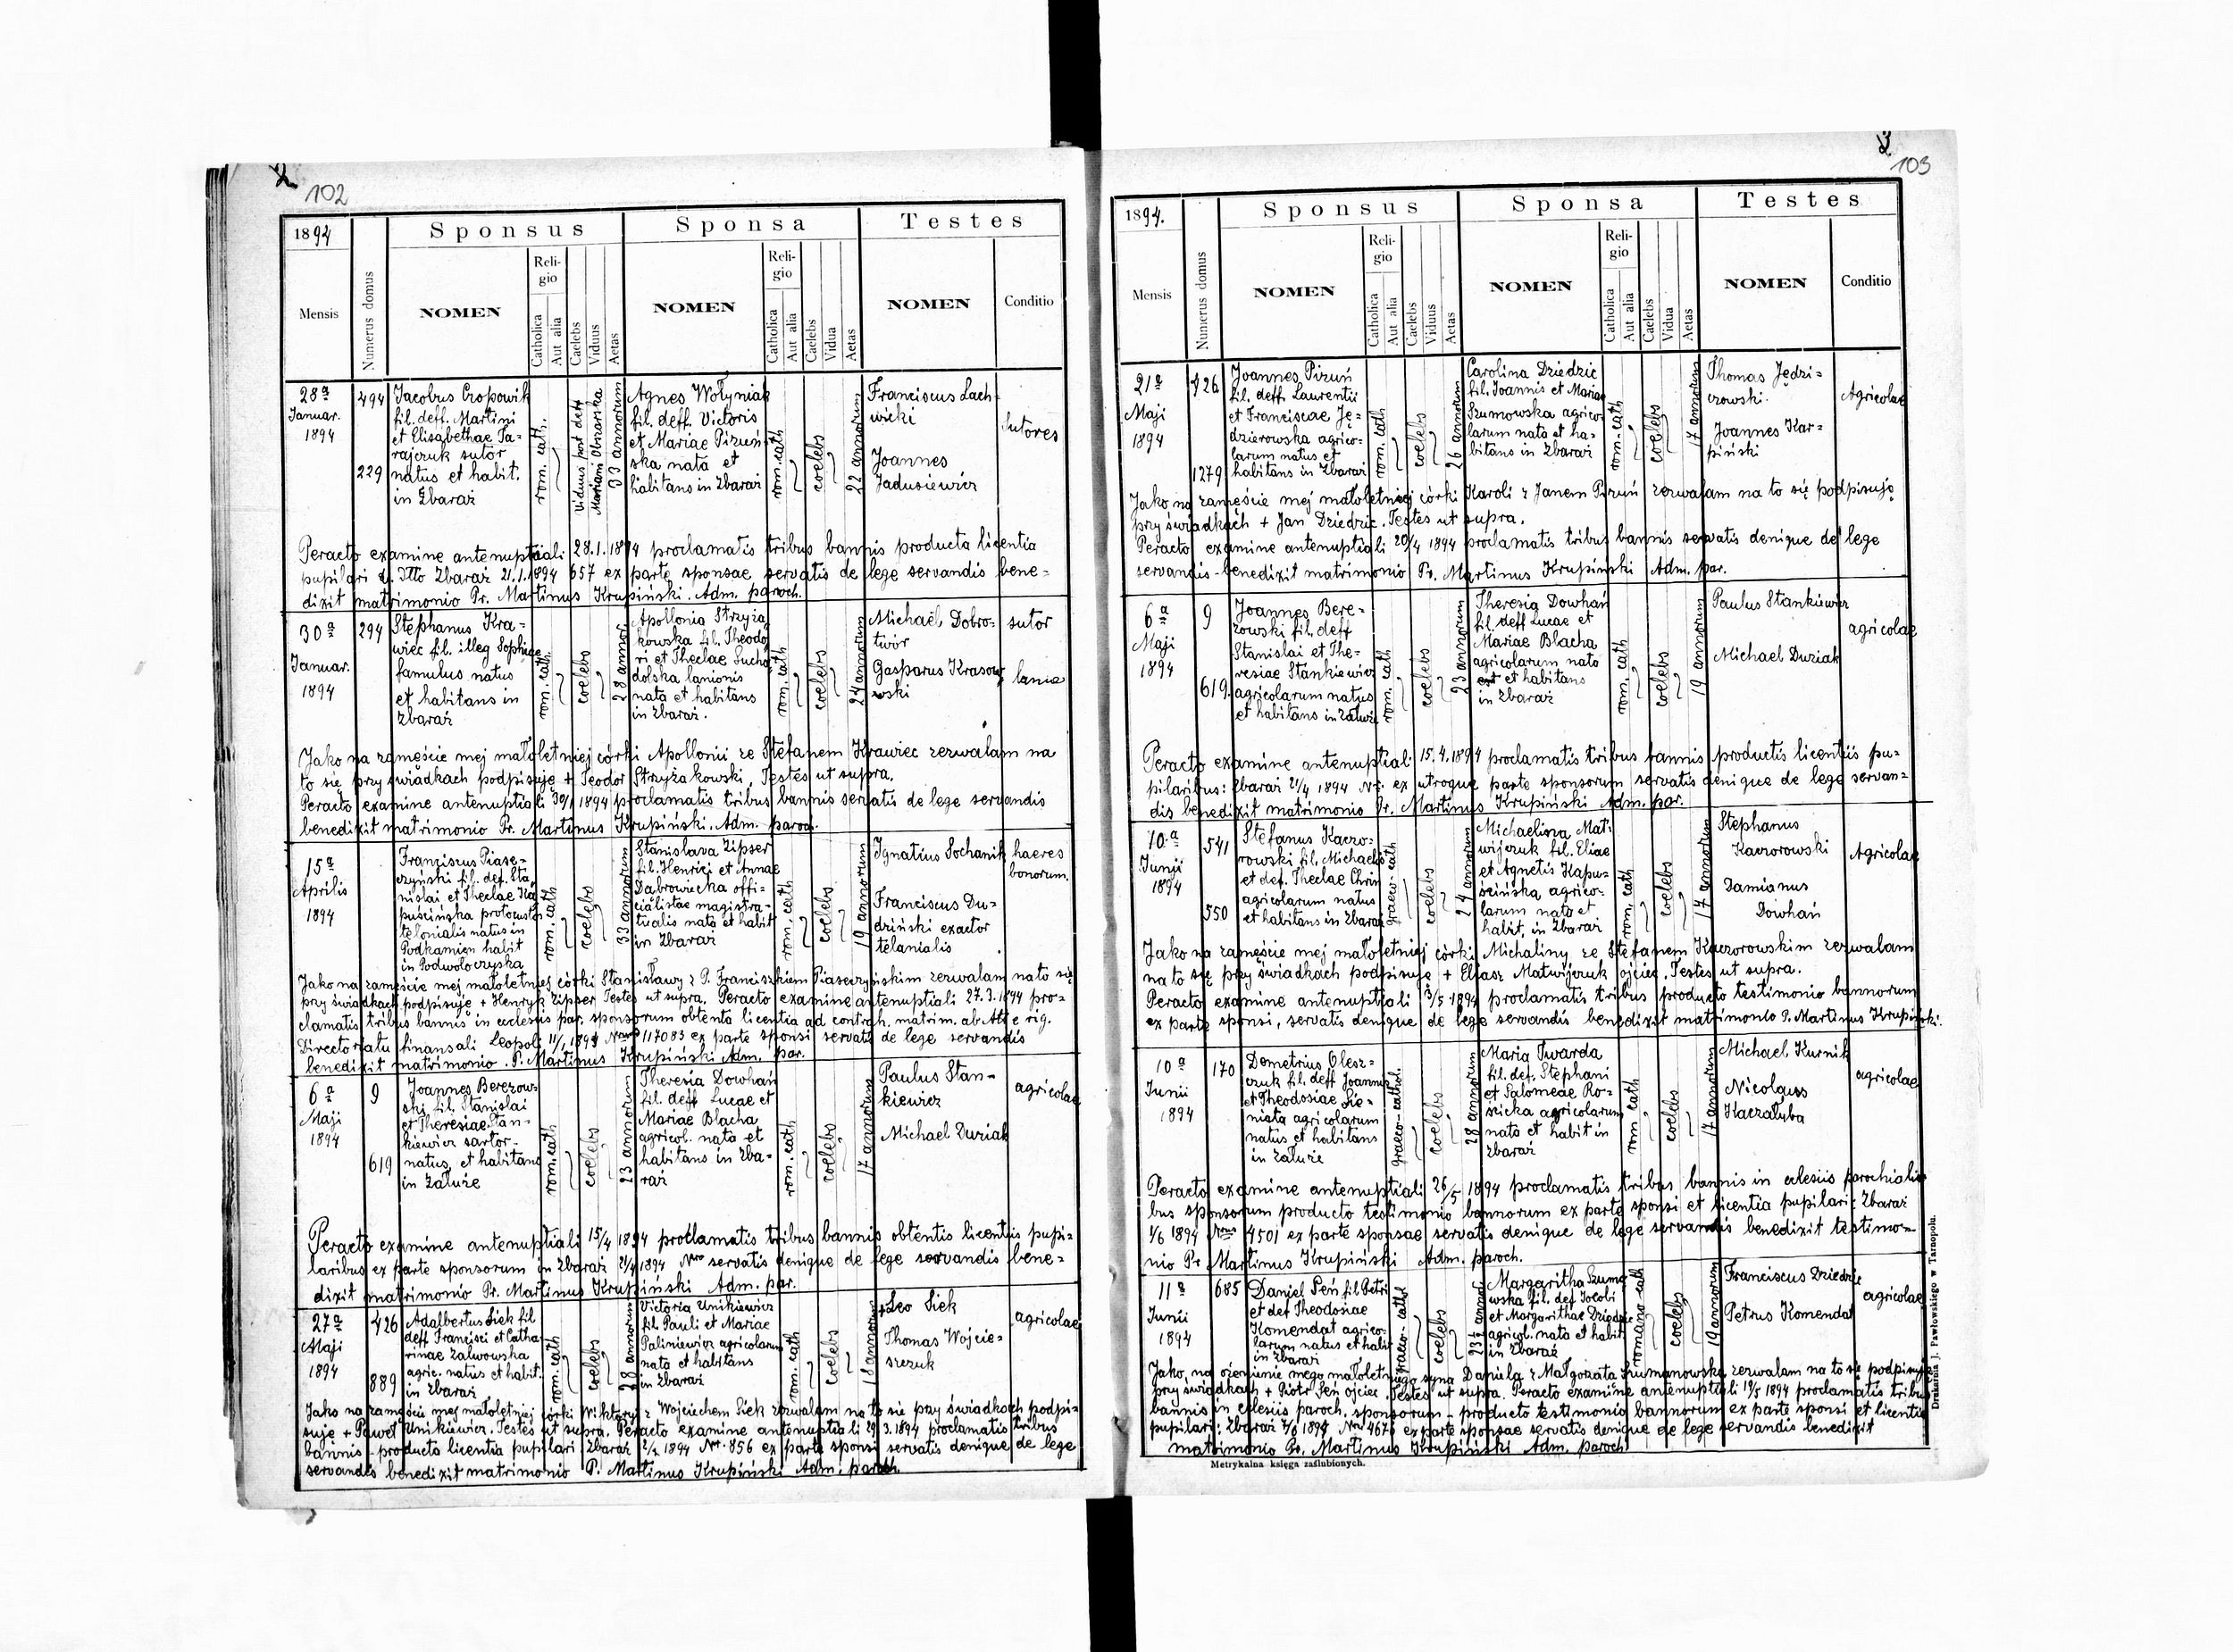 2
102
1894
Sponsus
Sponsa
Testes
Mensis
Numerus domus
NOMEN
Religio
Catholica
Aut alia
Caelebs
Viduus
Aetas
NOMEN
Religio
Catholica
Aut alia
Caelebs
Vidua
Aetas
NOMEN
Conditio
28a
Januar.
1894
494
229
Jacobus Czopowik
fil. deff. Martini
et Elisabethae Ta-
rajczuk sutor
natus et habit.
in Zbaraż
rom. cath.
Viduus post deff
Mariam Obnarska
33 annorum
Agnes Wołyniak
fil. deff. Victoris
et Mariae Pizuń
ska nata et
habitans in Zbaraż
rom. cath
coelebs
22 annorum
Franciscus Lach-
wicki
Joannes
Jadusiewicz
Sutores
Peracto examine antenuptiali 28.1.1894 proclamatis tribus bannis producta licentia
pupilari d. dtto Zbaraż 21.1.1894 657 ex parte sponsae servatis de lege servandis bene-
dixit matrimonio Pr. Martinus Krupiński. Adm. paroch.
30a
Januar.
1894
294
Stephanus Kra-
wiec fil. illeg Sophiae
famulus natus
et habitans in
Zbaraż
rom. cath.
coelebs
28 annor.
Apollonia Strzyża
kowska fil. Theodo
ri et Theclae Sucho
dolska lanionis
nata et habitans
in Zbaraż.
rom. cath
coelebs
24 annorum
Michaël Dobro-
twór
Gasparus Krasow
wski
sutor
lanio
Jako na zamęście mej małoletniej córki Apollonii ze Stefanem Krawiec zezwalam na
to się przy świadkach podpisuję + Teodor Strzyżakowski, Testes ut supra.
Peracto examine antenuptiali 30/1 1894 proclamatis tribus bannis servatis de lege servandis
benedixit matrimonio Pr. Martinus Krupiński. Adm. paroch.
15a
Aprilis
1894
Franziszus Piase-
czyński fil. def. Sta
nislai et Theclae Ka
puścińska
telonialis natus in
Podkamien habit
in Podwołoczyska
rom. cath
coelebs
33 annorum
Stanislava Zipser
fil. Henrici et Annae
Dąbrowiecka offi-
cialistae magistra-
tualis nata et habit
in Zbaraż
rom. cath
coelebs
19 annorum
Ignatius Sochanik
Franciscus Du-
dziński exactor
telanialis
haeres
bonorum.
Jako na zamęście mej małoletniej córki Stanisławy z P. Franciszkiem Piaseczyńskim zezwalam na to się
przy świadkach podpisuję + Henryk Zipser Testes ut supra. Peracto examine antenuptiali 27.3.1894 pro-
clamatis tribus bannis in ecclesiis par. sponsorum obtenta licentia ad contrah. matrim. ab
Directoriatu finansali Leopoli 11/1 1894 Nro 117083 ex parte sponsi servatis de lege servandis
benedixit matrimonio. P. Martinus Krupiński Adm. par.
6a
Maji
1894
9
619
Joannes Berezow-
ski fil. Stanislai
et Theresiae Stan-
kiewicz sartor-
natus et habitans
in Załuże
rom. cath
coelebs
23 annorum
Theresia Dowhań
fil. deff Lucae et
Mariae Blacha
agricol. nata et
habitans in Zba-
raż
rom. cath
coelebs
17 annorum
Paulus Stan-
kiewicz
Michael Duziak
agricolae
Peracto examine antenuptiali 15/4 1894 proclamatis tribus bannis obtentis licentiis pupi-
laribus ex parte sponsorum in Zbaraż 21/4 1894 Nro servatis denique de lege servandis bene-
dixit matrimonio Pr. Martinus Krupiński Adm. par.
27a
Maji
1894
426
889
Adalbertus Siek fil
deff Francisci et Catha
rinae Zalwowska
agric. natus et habit.
in Zbaraż
rom. cath
coelebs
28 annorum
Victoria Unikiewicz
fil Pauli et Mariae
Paliniewicz agricolarum
nata et habitans
in Zbaraż
rom. cath
coelebs
18 annorum
+Leo Siek
Thomas Wojcie-
szczuk
agricolae
Jako na zamęście mej małoletniej córki Wiktoryi z Wojciechem Siek zezwalam na to się przy świadkach podpi-
suję + Paweł Unikiewicz. Testes ut supra. Peracto examine antenuptiali 29.3.1894 proclamatis tribus
bannis - producta licentia pupilari Zbaraż 2/2 1894 Nr. 856 ex parte sponsi servatis denique de lege
servandis benedixit matrimonio P. Martinus Krupiński Adm. paroch.
3
103
1894.
Sponsus
Sponsa
Testes
Mensis
Numerus domus
NOMEN
Religio
Catholica
Aut alia
Caelebs
Viduus
Aetas
NOMEN
Religio
Catholica
Aut alia
Caelebs
Vidua
Aetas
NOMEN
Conditio
21a
Maji
1894
426
1279
Joannes Pizuń
fil. deff. Laurentii
et Franciscae Ję-
dzierowska agrico-
larum natus et
habitans in Zbaraż
rom. cath
coelebs
26 annorum
Carolina Dziedzic
fil. Joannis et Mariae
Szumowska agrico-
larum nata et ha-
bitans in Zbaraż
rom. cath
coelebs
17 annorum
Thomas Jędzi-
czowski.
Joannes Kar-
piński
Agricolae
Jako na zamęście mej małoletniej córki Karoli z Janem Pizuń zezwalam na to się podpisuję
przy świadkach + Jan Dziedzic. Testes ut supra.
Peracto examine antenuptiali 20/4 1894 proclamatis tribus bannis servatis denique de lege
servandis - benedixit matrimonio Pr. Martinus Krupiński Adm. par.
6a
Maji
1894
9
619.
Joannes Bere-
zowski fil. deff
Stanislai et The-
resiae Stankiewicz
agricolarum natus
et habitans in Załuże
rom. cath
coelebs
23 annorum
Theresia Dowhań
fil. deff Lucae et
Mariae Blacha
agricolarum nata
et habitans
in Zbaraż
rom. cath
coelebs
19 annorum
Paulus Stankiewicz
Michael Duziak
agricolae
Peracto examine antenuptiali 15.4.1894 proclamatis tribus bannis productis licentiis pu-
pilaribus: Zbaraż 21/4 1894 Nr. ex utroque parte sponsorum servatis denique de lege servan-
dis benedixit matrimonio Pr. Martinus Krupiński Adm. par.
10.a
Junii
1894
541
550
Stefanus Kaczo-
rowski fil. Michaelis
et def. Theclae Chrin
agricolarum natus
et habitans in Zbaraż
graeco-cath
coelebs
24 annorum
Michaelina Mat-
wijczuk fil. Eliae
et Agnetis Kapu-
ścińska, agrico-
larum nata et
habit. in Zbaraż
rom. cath
coelebs
17 annorum
Stephanus
Kaczorowski
Damianus
Dowhań
Agricolae
Jako na zamęście mej małoletniej córki Michaliny ze Stefanem Kaczorowskim zezwalam
na to się przy świadkach podpisuję + Eljasz Matwijczuk ojciec. Testes ut supra.
Peracto examine antenuptiali 3/5 1894 proclamatis tribus producto testimonio bannorum
ex parte sponsi, servatis denique de lege servandis benedixit matrimonio P. Martinus Krupiński.
10a
Junii
1894
170
Demetrius Olesz-
czuk fil. deff Joannis
et Theodosiae Sie-
niata agricolarum
natus et habitans
in Załuże
graeco-cathol.
coelebs
28 annorum
Maria Twarda
fil. def. Stephani
et Salomeae Ro-
sicka agricolarum
nata et habit in
Zbaraż
rom cath
coelebs
17 annorum
Michael Kurnik
Nicolaus
Kaczałuba
agricolae
Peracto examine antenuptiali 26/5 1894 proclamatis tribus bannis in eclesiis parochiali-
bus sponsorum producto testimonio bannorum ex parte sponsi et licentia pupilari: Zbaraż
1/6 1894 Nrus 4501 ex parte sponsae servatis denique de lege servandis benedixit testimo-
nio Pr Martinus Krupiński Adm. paroch.
11a
Junii
1894
685
Daniel Seń fil Petri
et def Theodosiae
Komendat agrico-
larum natus et habit
in Zbaraż
graeco-cathol
coelebs
23½ annor.
Margaritha Szuma
wska fil. def Jocobi
et Margarithae Dziedzic
agricol. nata et habit
in Zbaraż
romano-cath
coelebs
19 annorum
Franciscus Dziedzic
Petrus Komendat
agricolae
Jako na ożenienie mego małoletniego syna Daniela z Małgorzata Szumanowską zezwalam na to się podpisuję
przy świadkach + Piotr Seń ojciec. Testes ut supra. Peracto examine antenuptiali 19/5 1894 proclamatis tribus
bannis in eclesiis paroch. sponsorum - producto testimonio bannorum ex parte sponsi et licentia
pupilari: Zbaraż 7/6 1894 Nru 4676 ex parte sponsae servatis denique de lege servandis benedixit
matrimonio Pr. Martinus Krupiński Adm. paroch.
Metrykalna księga zaślubionych.
Drukarnia J. Pawłowskiego w Tarnopolu.